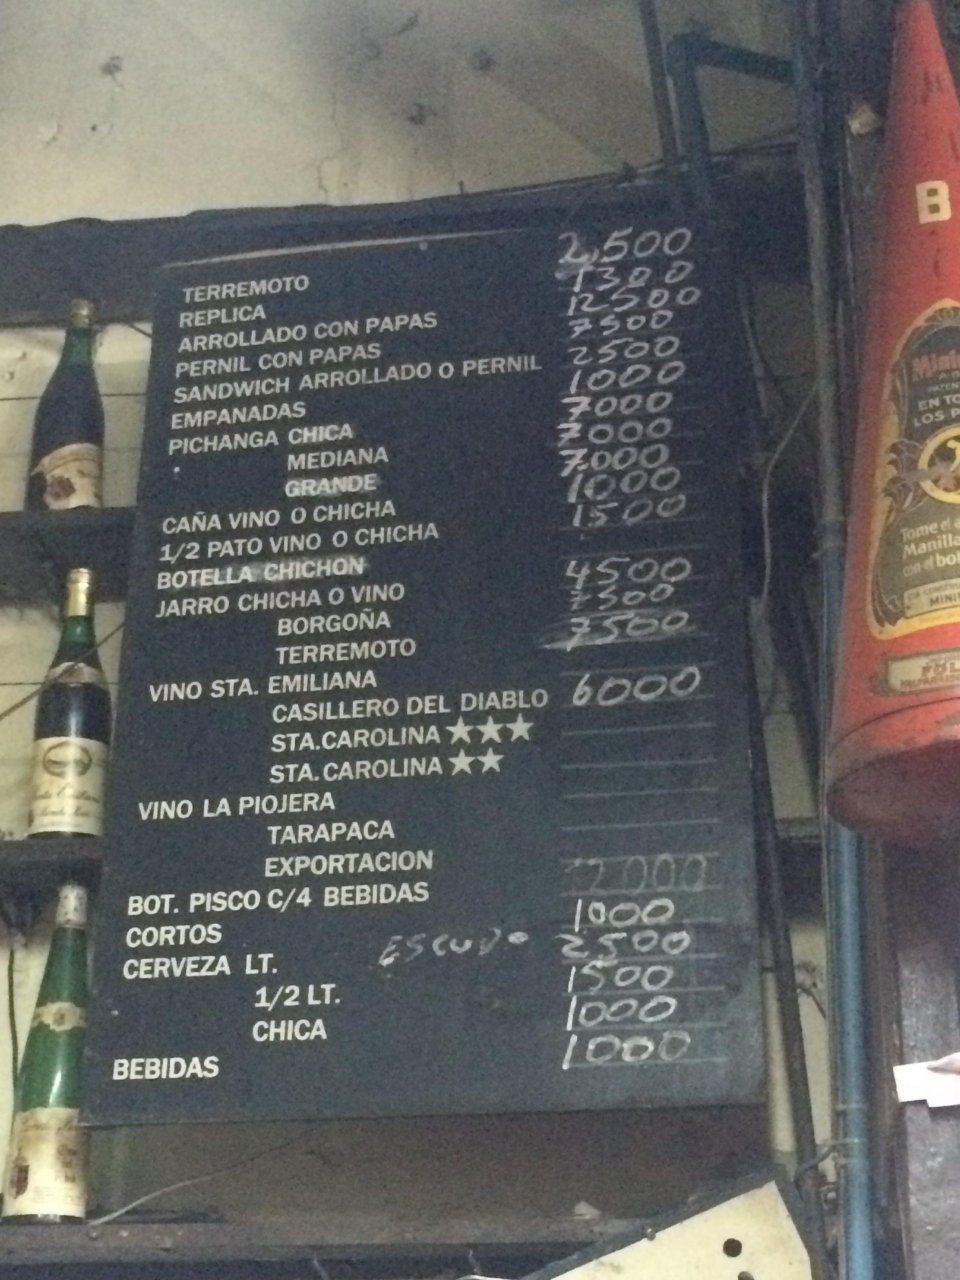 TERREMOTO 2,500
REPLICA 1300
ARROLLADO CON PAPAS 12500
PERNIL CON PAPAS 7500
SANDWICH ARROLLADO O PERNIL 2500
EMPANADAS 1000
PICHANGA CHICA 7000
MEDIANA 7000
GRANDE 7000
CAÑA VINO O CHICHA 1000
1/2 PATO VINO O CHICHA 1500
BOTELLA CHICHON
JARRO CHICHA O VINO 4500
BORGOÑA 7500
TERREMOTO 7500
VINO STA. EMILIANA
CASILLERO DEL DIABLO 6000
STA.CAROLINA ★★★
STA.CAROLINA ★★
VINO LA PIOJERA
TARAPACA
EXPORTACION
BOT. PISCO C/4 BEBIDAS 12000
CORTOS 1000
CERVEZA LT. ESCUDO 2500
1/2 LT. 1500
CHICA 1000
BEBIDAS 1000
B
EN TO
LOS P
Tome el
Manilla
con el bo
MINI